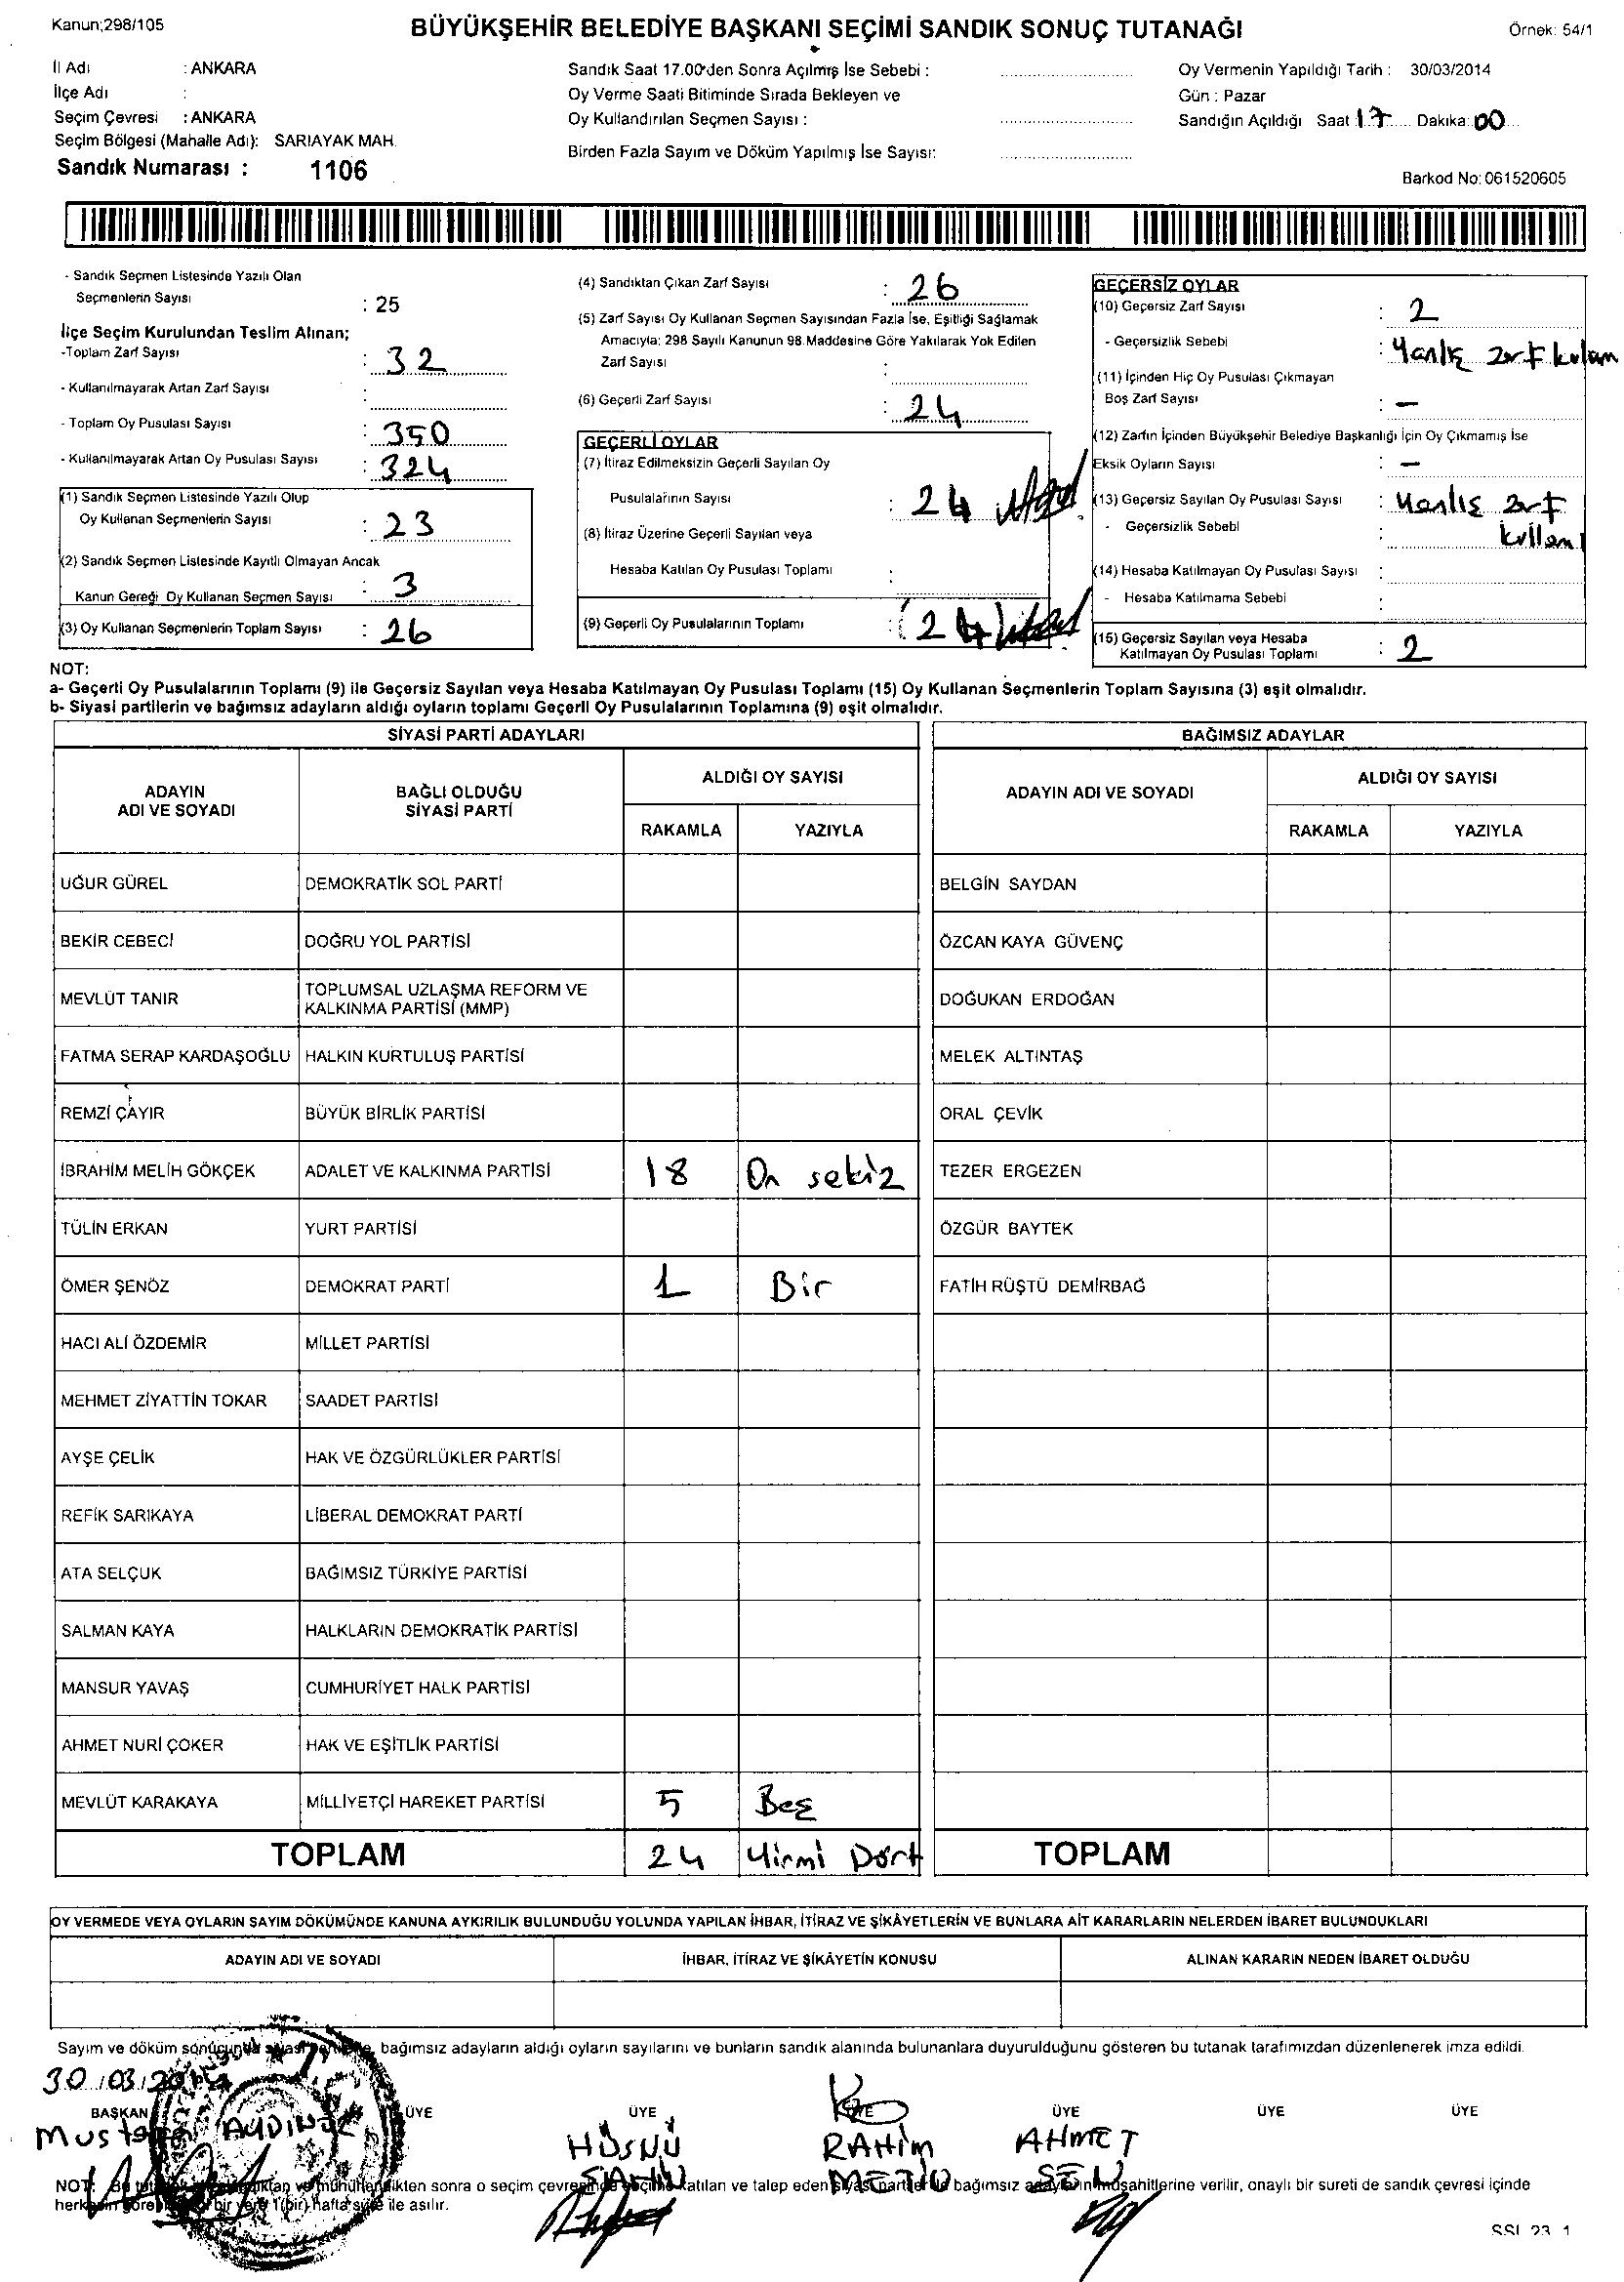 Kanun;298/105
BÜYÜKŞEHİR BELEDİYE BAŞKANI SEÇİMİ SANDIK SONUÇ TUTANAĞI
Örnek: 54/1
İl Adı : ANKARA
İlçe Adı :
Seçim Çevresi : ANKARA
Seçim Bölgesi (Mahalle Adı): SARIAYAK MAH.
Sandık Numarası : 1106
Sandık Saat 17.00'den Sonra Açılmış İse Sebebi :
Oy Verme Saati Bitiminde Sırada Bekleyen ve
Oy Kullandırılan Seçmen Sayısı :
Birden Fazla Sayım ve Döküm Yapılmış İse Sayısı:
Oy Vermenin Yapıldığı Tarih : 30/03/2014
Gün : Pazar
Sandığın Açıldığı Saat 17 Dakika: 00
Barkod No: 061520605
- Sandık Seçmen Listesinde Yazılı Olan
Seçmenlerin Sayısı : 25
İlçe Seçim Kurulundan Teslim Alınan;
-Toplam Zarf Sayısı : 32
- Kullanılmayarak Artan Zarf Sayısı :
- Toplam Oy Pusulası Sayısı : 350
- Kullanılmayarak Artan Oy Pusulası Sayısı : 324
(1) Sandık Seçmen Listesinde Yazılı Olup
Oy Kullanan Seçmenlerin Sayısı : 23
(2) Sandık Seçmen Listesinde Kayıtlı Olmayan Ancak
Kanun Gereği Oy Kullanan Seçmen Sayısı : 3
(3) Oy Kullanan Seçmenlerin Toplam Sayısı : 26
(4) Sandıktan Çıkan Zarf Sayısı : 26
(5) Zarf Sayısı Oy Kullanan Seçmen Sayısından Fazla İse, Eşitliği Sağlamak
Amacıyla; 298 Sayılı Kanunun 98.Maddesine Göre Yakılarak Yok Edilen
Zarf Sayısı :
(6) Geçerli Zarf Sayısı : 24
GEÇERLİ OYLAR
(7) İtiraz Edilmeksizin Geçerli Sayılan Oy
Pusulalarının Sayısı : 24
(8) İtiraz Üzerine Geçerli Sayılan veya
Hesaba Katılan Oy Pusulası Toplamı :
(9) Geçerli Oy Pusulalarının Toplamı : (24)
GEÇERSİZ OYLAR
(10) Geçersiz Zarf Sayısı : 2
- Geçersizlik Sebebi : Yanlış zarf kulanı
(11) İçinden Hiç Oy Pusulası Çıkmayan
Boş Zarf Sayısı : –
(12) Zarfın İçinden Büyükşehir Belediye Başkanlığı İçin Oy Çıkmamış İse
Eksik Oyların Sayısı : –
(13) Geçersiz Sayılan Oy Pusulası Sayısı : Yanlış zarf
- Geçersizlik Sebebi : kullanı
(14) Hesaba Katılmayan Oy Pusulası Sayısı :
- Hesaba Katılmama Sebebi :
(15) Geçersiz Sayılan veya Hesaba
Katılmayan Oy Pusulası Toplamı : 2
NOT:
a- Geçerli Oy Pusulalarının Toplamı (9) ile Geçersiz Sayılan veya Hesaba Katılmayan Oy Pusulası Toplamı (15) Oy Kullanan Seçmenlerin Toplam Sayısına (3) eşit olmalıdır.
b- Siyasi partilerin ve bağımsız adayların aldığı oyların toplamı Geçerli Oy Pusulalarının Toplamına (9) eşit olmalıdır.
SİYASİ PARTİ ADAYLARI
ADAYIN ADI VE SOYADI
BAĞLI OLDUĞU SİYASİ PARTİ
ALDIĞI OY SAYISI
RAKAMLA YAZIYLA
UĞUR GÜREL DEMOKRATİK SOL PARTİ
BEKİR CEBECİ DOĞRU YOL PARTİSİ
MEVLÜT TANIR TOPLUMSAL UZLAŞMA REFORM VE
KALKINMA PARTİSİ (MMP)
FATMA SERAP KARDAŞOĞLU HALKIN KURTULUŞ PARTİSİ
REMZİ ÇAYIR BÜYÜK BİRLİK PARTİSİ
İBRAHİM MELİH GÖKÇEK ADALET VE KALKINMA PARTİSİ 18 On sekiz
TÜLİN ERKAN YURT PARTİSİ
ÖMER ŞENÖZ DEMOKRAT PARTİ 1 Bir
HACI ALİ ÖZDEMİR MİLLET PARTİSİ
MEHMET ZİYATTİN TOKAR SAADET PARTİSİ
AYŞE ÇELİK HAK VE ÖZGÜRLÜKLER PARTİSİ
REFİK SARIKAYA LİBERAL DEMOKRAT PARTİ
ATA SELÇUK BAĞIMSIZ TÜRKİYE PARTİSİ
SALMAN KAYA HALKLARIN DEMOKRATİK PARTİSİ
MANSUR YAVAŞ CUMHURİYET HALK PARTİSİ
AHMET NURİ ÇOKER HAK VE EŞİTLİK PARTİSİ
MEVLÜT KARAKAYA MİLLİYETÇİ HAREKET PARTİSİ 5 Beş
TOPLAM 24 Yirmi Dört
BAĞIMSIZ ADAYLAR
ADAYIN ADI VE SOYADI
ALDIĞI OY SAYISI
RAKAMLA YAZIYLA
BELGİN SAYDAN
ÖZCAN KAYA GÜVENÇ
DOĞUKAN ERDOĞAN
MELEK ALTINTAŞ
ORAL ÇEVİK
TEZER ERGEZEN
ÖZGÜR BAYTEK
FATİH RÜŞTÜ DEMİRBAĞ
TOPLAM
OY VERMEDE VEYA OYLARIN SAYIM DÖKÜMÜNDE KANUNA AYKIRILIK BULUNDUĞU YOLUNDA YAPILAN İHBAR, İTİRAZ VE ŞİKÂYETLERİN VE BUNLARA AİT KARARLARIN NELERDEN İBARET BULUNDUKLARI
ADAYIN ADI VE SOYADI İHBAR, İTİRAZ VE ŞİKÂYETİN KONUSU ALINAN KARARIN NEDEN İBARET OLDUĞU
Sayım ve döküm sonucunda siyasi partilerle, bağımsız adayların aldığı oyların sayılarını ve bunların sandık alanında bulunanlara duyurulduğunu gösteren bu tutanak tarafımızdan düzenlenerek imza edildi.
30/03/2014
BAŞKAN ÜYE ÜYE ÜYE ÜYE ÜYE ÜYE
Mustafa HÜSNÜ RAHİM AHMET
ŞAHİN METİN ŞEN
NOT: ve mühürlendikten sonra o seçim çevresinde seçime katılan ve talep eden siyasi partilerle bağımsız adayların müşahitlerine verilir, onaylı bir sureti de sandık çevresi içinde
herkesin bir yere 1(bir) hafta süre ile asılır.
SSI 23 1